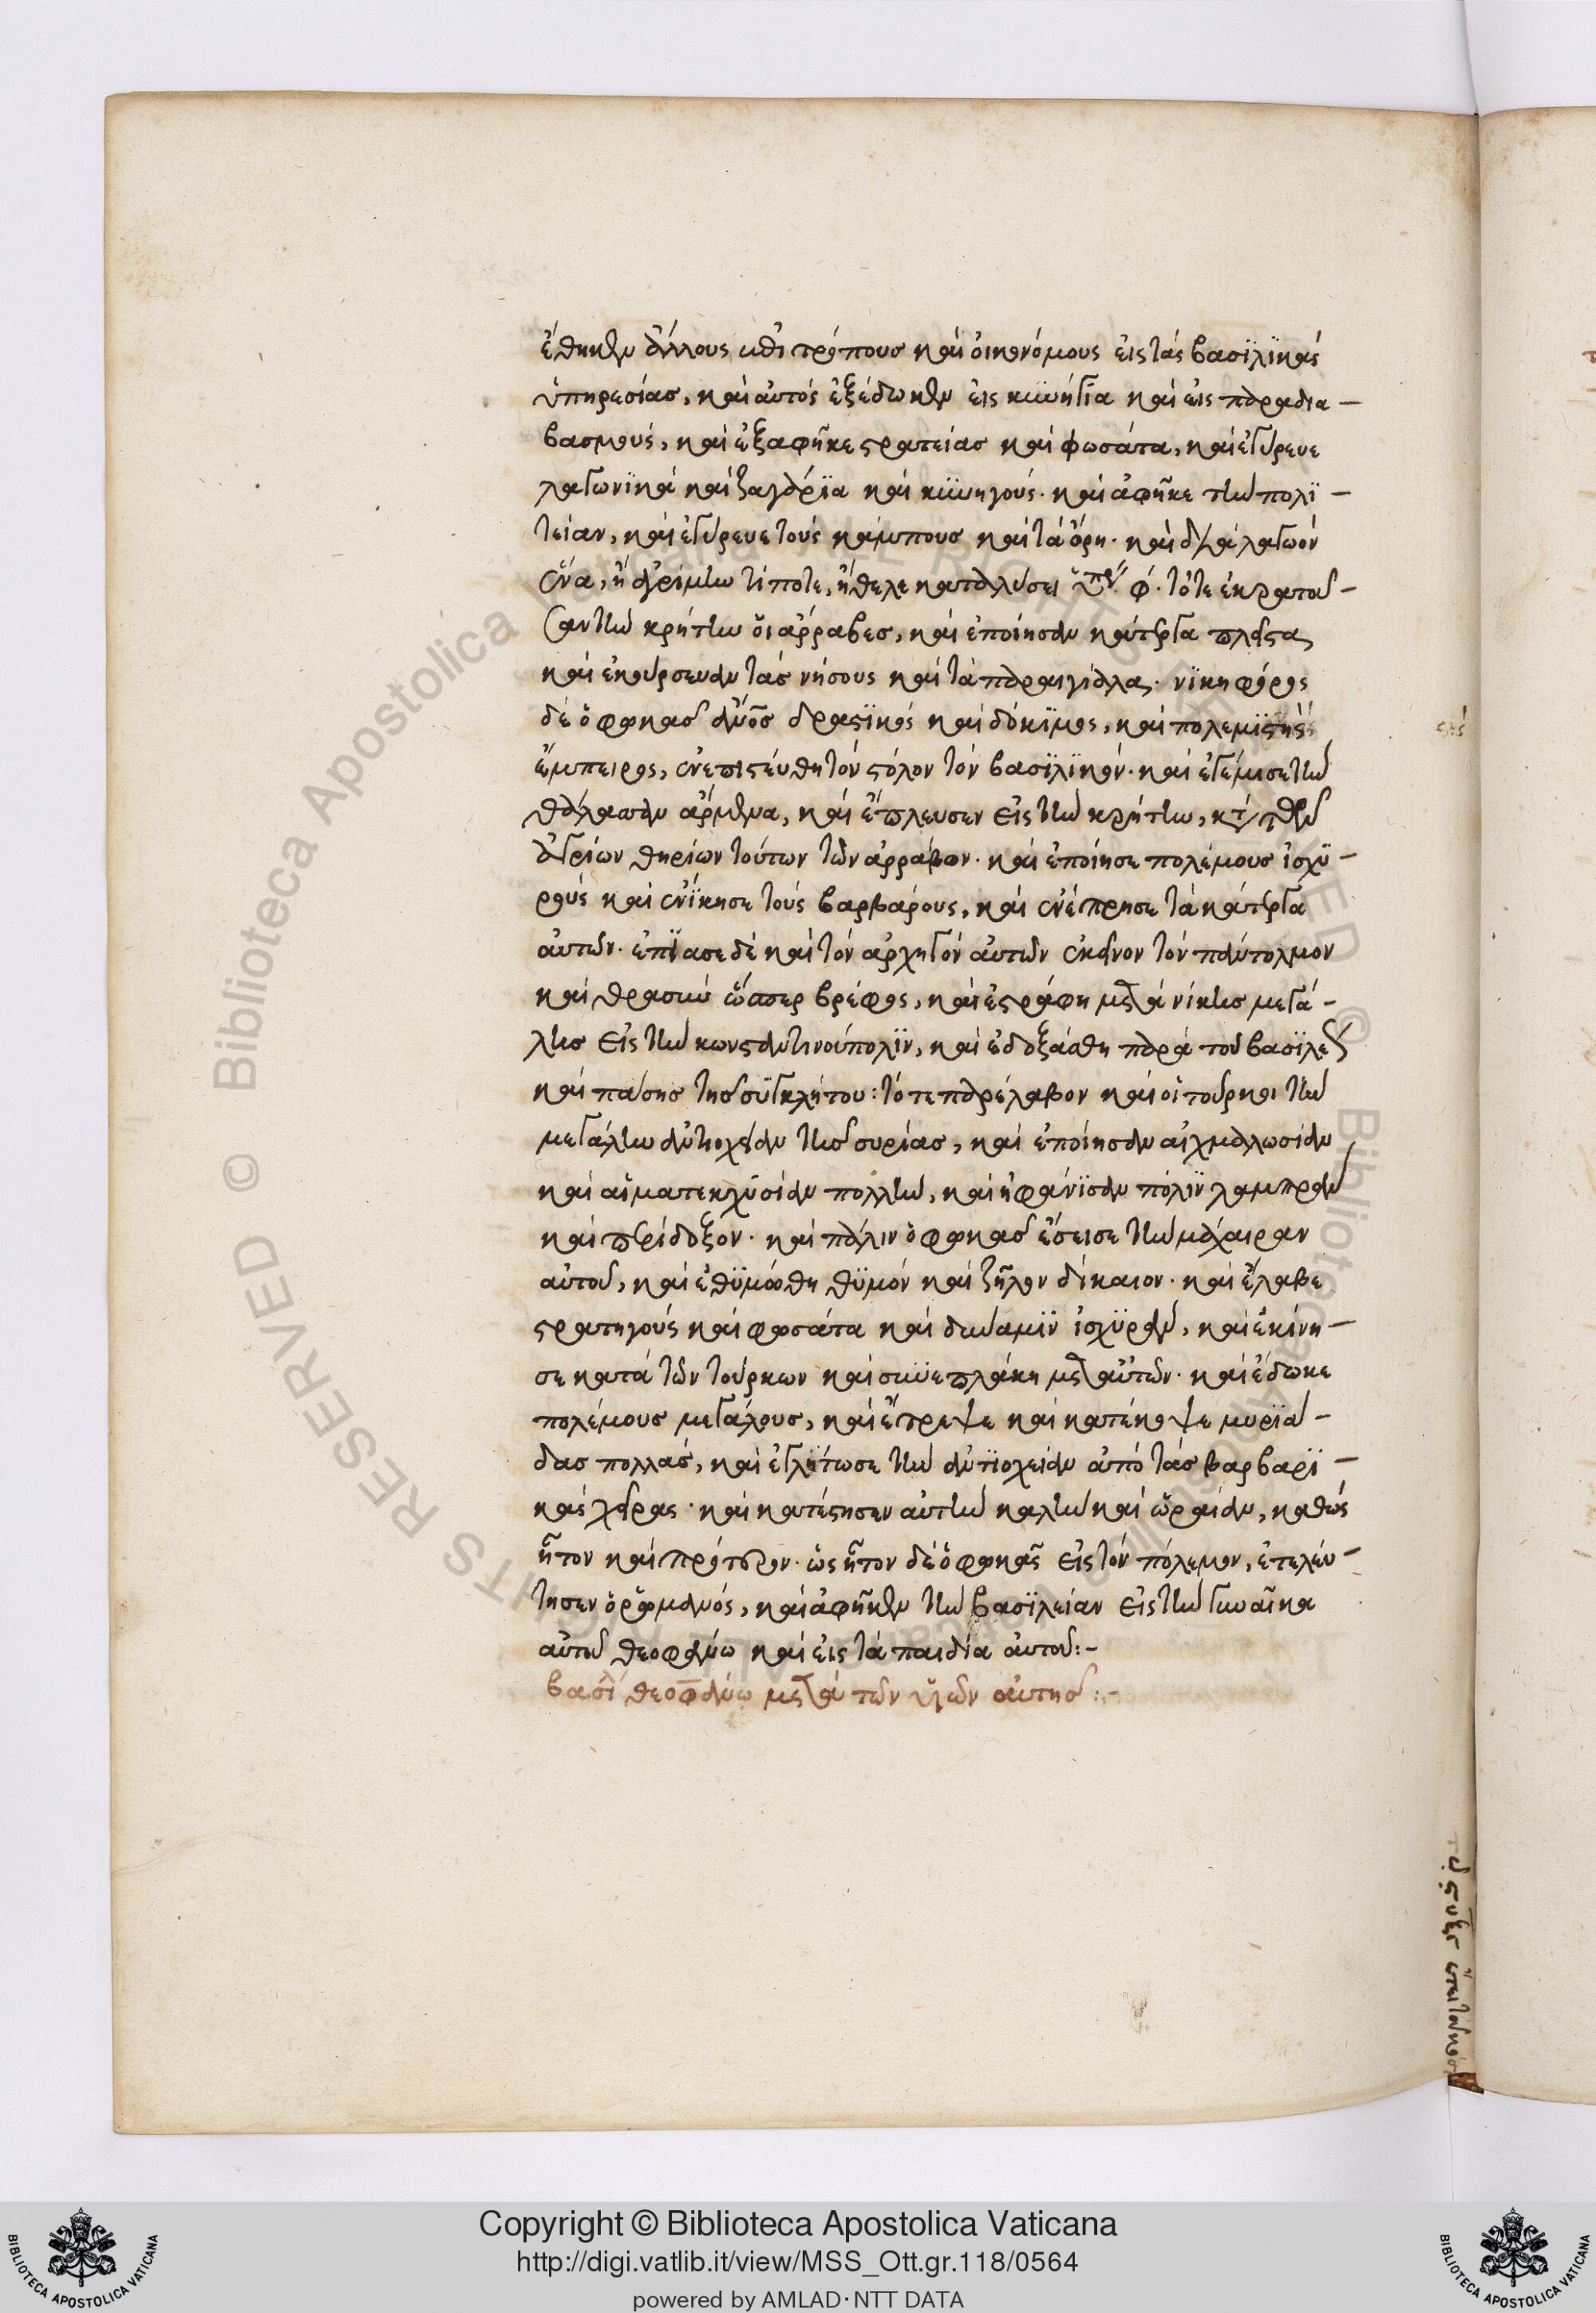 ἔθηκεν ἄλλους ἐπιτρόπους καὶ οἰκονόμους εἰς τὰς βασϊλϊκὰς
ὑπηρεσίας, καὶ αὐτὸς ἐξέδωκεν εἰς κϋνήγϊα καὶ εἰς παραδια-
βασμοὺς, καὶ ἐξαφῆκε στρατείας καὶ φωσάτα, καὶ ἐγύρευε
λαγωνϊκὰ καὶ ζαγάρϊα καὶ κϋνηγούς· καὶ ἀφῆκε τὴν πολϊ-
τείαν, καὶ ἐγύρευε τοὺς κάμπους καὶ τὰ ὄρη· καὶ διὰ λαγωὸν
ἕνα, ἢ ἀγρίμην τίποτε, ἤθελε καταλύσει φ· τότε ἐκρατοῦ-
σαν τὴν κρήτην ὅι ἀρράβες, καὶ ἐποίησαν κάτεργα πλεῖστα
καὶ ἐκούρσευαν τὰς νήσους καὶ τὰ παραιγίαλας· νϊκηφόρος
δὲ ὁ φωκᾶς ἄνος δραστϊκὸς καὶ δόκϊμος, καὶ πολεμϊστὴς
ἔμπειρος, ἐνεπιστεύθη τὸν στόλον τὸν βασϊλϊκόν· καὶ ἐγέμισε τὴν
θάλασσαν ἄρμενα, καὶ ἔπλευσεν εἰς τὴν κρήτην, κατὰ τῶν
ἀγρίων θηρίων τούτων τῶν ἀρράβων· καὶ ἐποίησε πολέμους ἰσχϋ-
ροὺς καὶ ἐνίκησε τοὺς βαρβάρους, καὶ ἐνέπρησε τὰ κάτεργα
αὐτῶν· ἐπϊασε δὲ καὶ τὸν ἀρχηγὸν αὐτῶν ἐκεῖνον τὸν παντολμον
καὶ θρασὺν ὥσπερ βρέφος, καὶ ἐστράφη μετὰ νίκης μεγά-
λης εἰς τὴν κωνσταντινούπολϊν, καὶ ἐδοξάσθη παρὰ τοῦ βασϊλέως
καὶ πάσης τῆς συγκλήτου: τότε παρέλαβον καὶ οἱ τοῦρκοι τὴν
μεγάλην ἀντιοχείαν τῆς συρίας, καὶ ἐποίησαν αἰχμαλωσίαν
καὶ αἱματεκχϋσίαν πολλὴν, καὶ ἠφάνϊσαν πόλϊν λαμπρὰν
καὶ περίδοξον· καὶ πάλιν ὁ φωκᾶς ἔσεισε τὴν μάχαιραν
αὐτοῦ, καὶ ἐθϋμώθη θϋμὸν καὶ ζῆλον δίκαιον· καὶ ἔλαβε
στρατηγοὺς καὶ φωσάτα καὶ δυναμϊν ἰσχϋρὰν, καὶ ἐκίνη-
σε κατὰ τῶν τούρκων καὶ συνεπλάκη μετ' αὐτῶν· καὶ ἔδωκε
πολέμους μεγάλους, καὶ ἔτρεψε καὶ κατέκοψε μυρϊά-
δας πολλὰς, καὶ ἐγλύτωσε τὴν ἀντϊοχείαν ἀπὸ τὰς βαρβαρϊ-
κὰς χεῖρας· καὶ κατέστησεν αὐτὴν καλὴν καὶ ὡραίαν, καθὼς
ἦτον καὶ πρότερον· ὡς ἦτον δὲ ὁ φωκᾶς εἰς τὸν πόλεμον, ἐτελεύ-
τησεν ὁ ῥωμανὸς, καὶ ἀφῆκεν τὴν βασϊλείαν εἰς τὴν γυναῖκα
αὐτοῦ θεοφανὼ καὶ εἰς τὰ παιδία αὐτοῦ:-
βασι θεοφανὼ μετὰ τῶν υἱῶν αὐτῆς:-